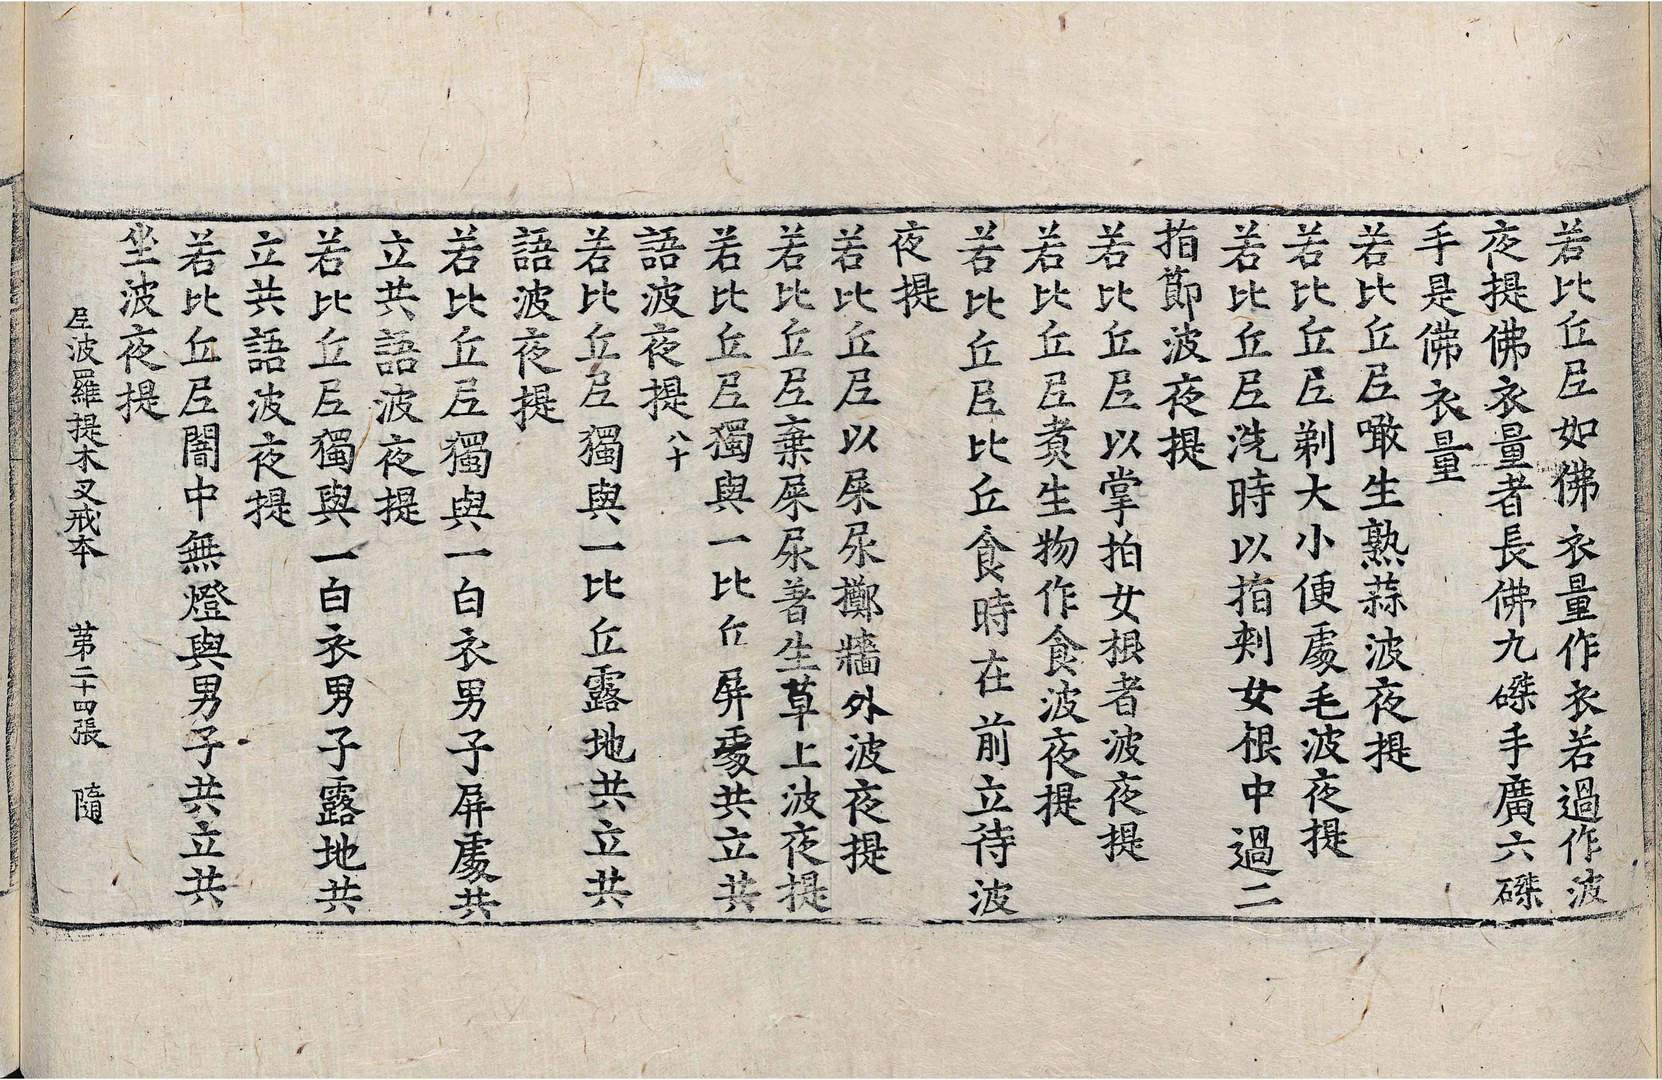 若比丘尼如佛衣量作衣若過作波
夜提佛衣量者長佛九磔手廣六磔
手是佛衣量
若比丘尼噉生熟蒜波夜提
若比丘尼剃大小便處毛波夜提
若比丘尼洗時以指剌女根中過二
指節波夜提
若比丘尼以掌拍女根者波夜提
若比丘尼煑生物作食波夜提
若比丘尼比丘食時在前立待波
夜提
若比丘尼以屎尿擲牆外波夜提
若比丘尼棄屎尿著生草上波夜提
若比丘尼獨與一比丘屏處共立共
語波夜提八十
若比丘尼獨與一比丘露地共立共
語波夜提
若比丘尼獨與一白衣男子屏處共
立共語波夜提
若比丘尼獨與一白衣男子露地共
立共語波夜提
若比丘尼闇中無燈與男子共立共
坐波夜提
尼波羅提木叉戒本 第二十四張 隨